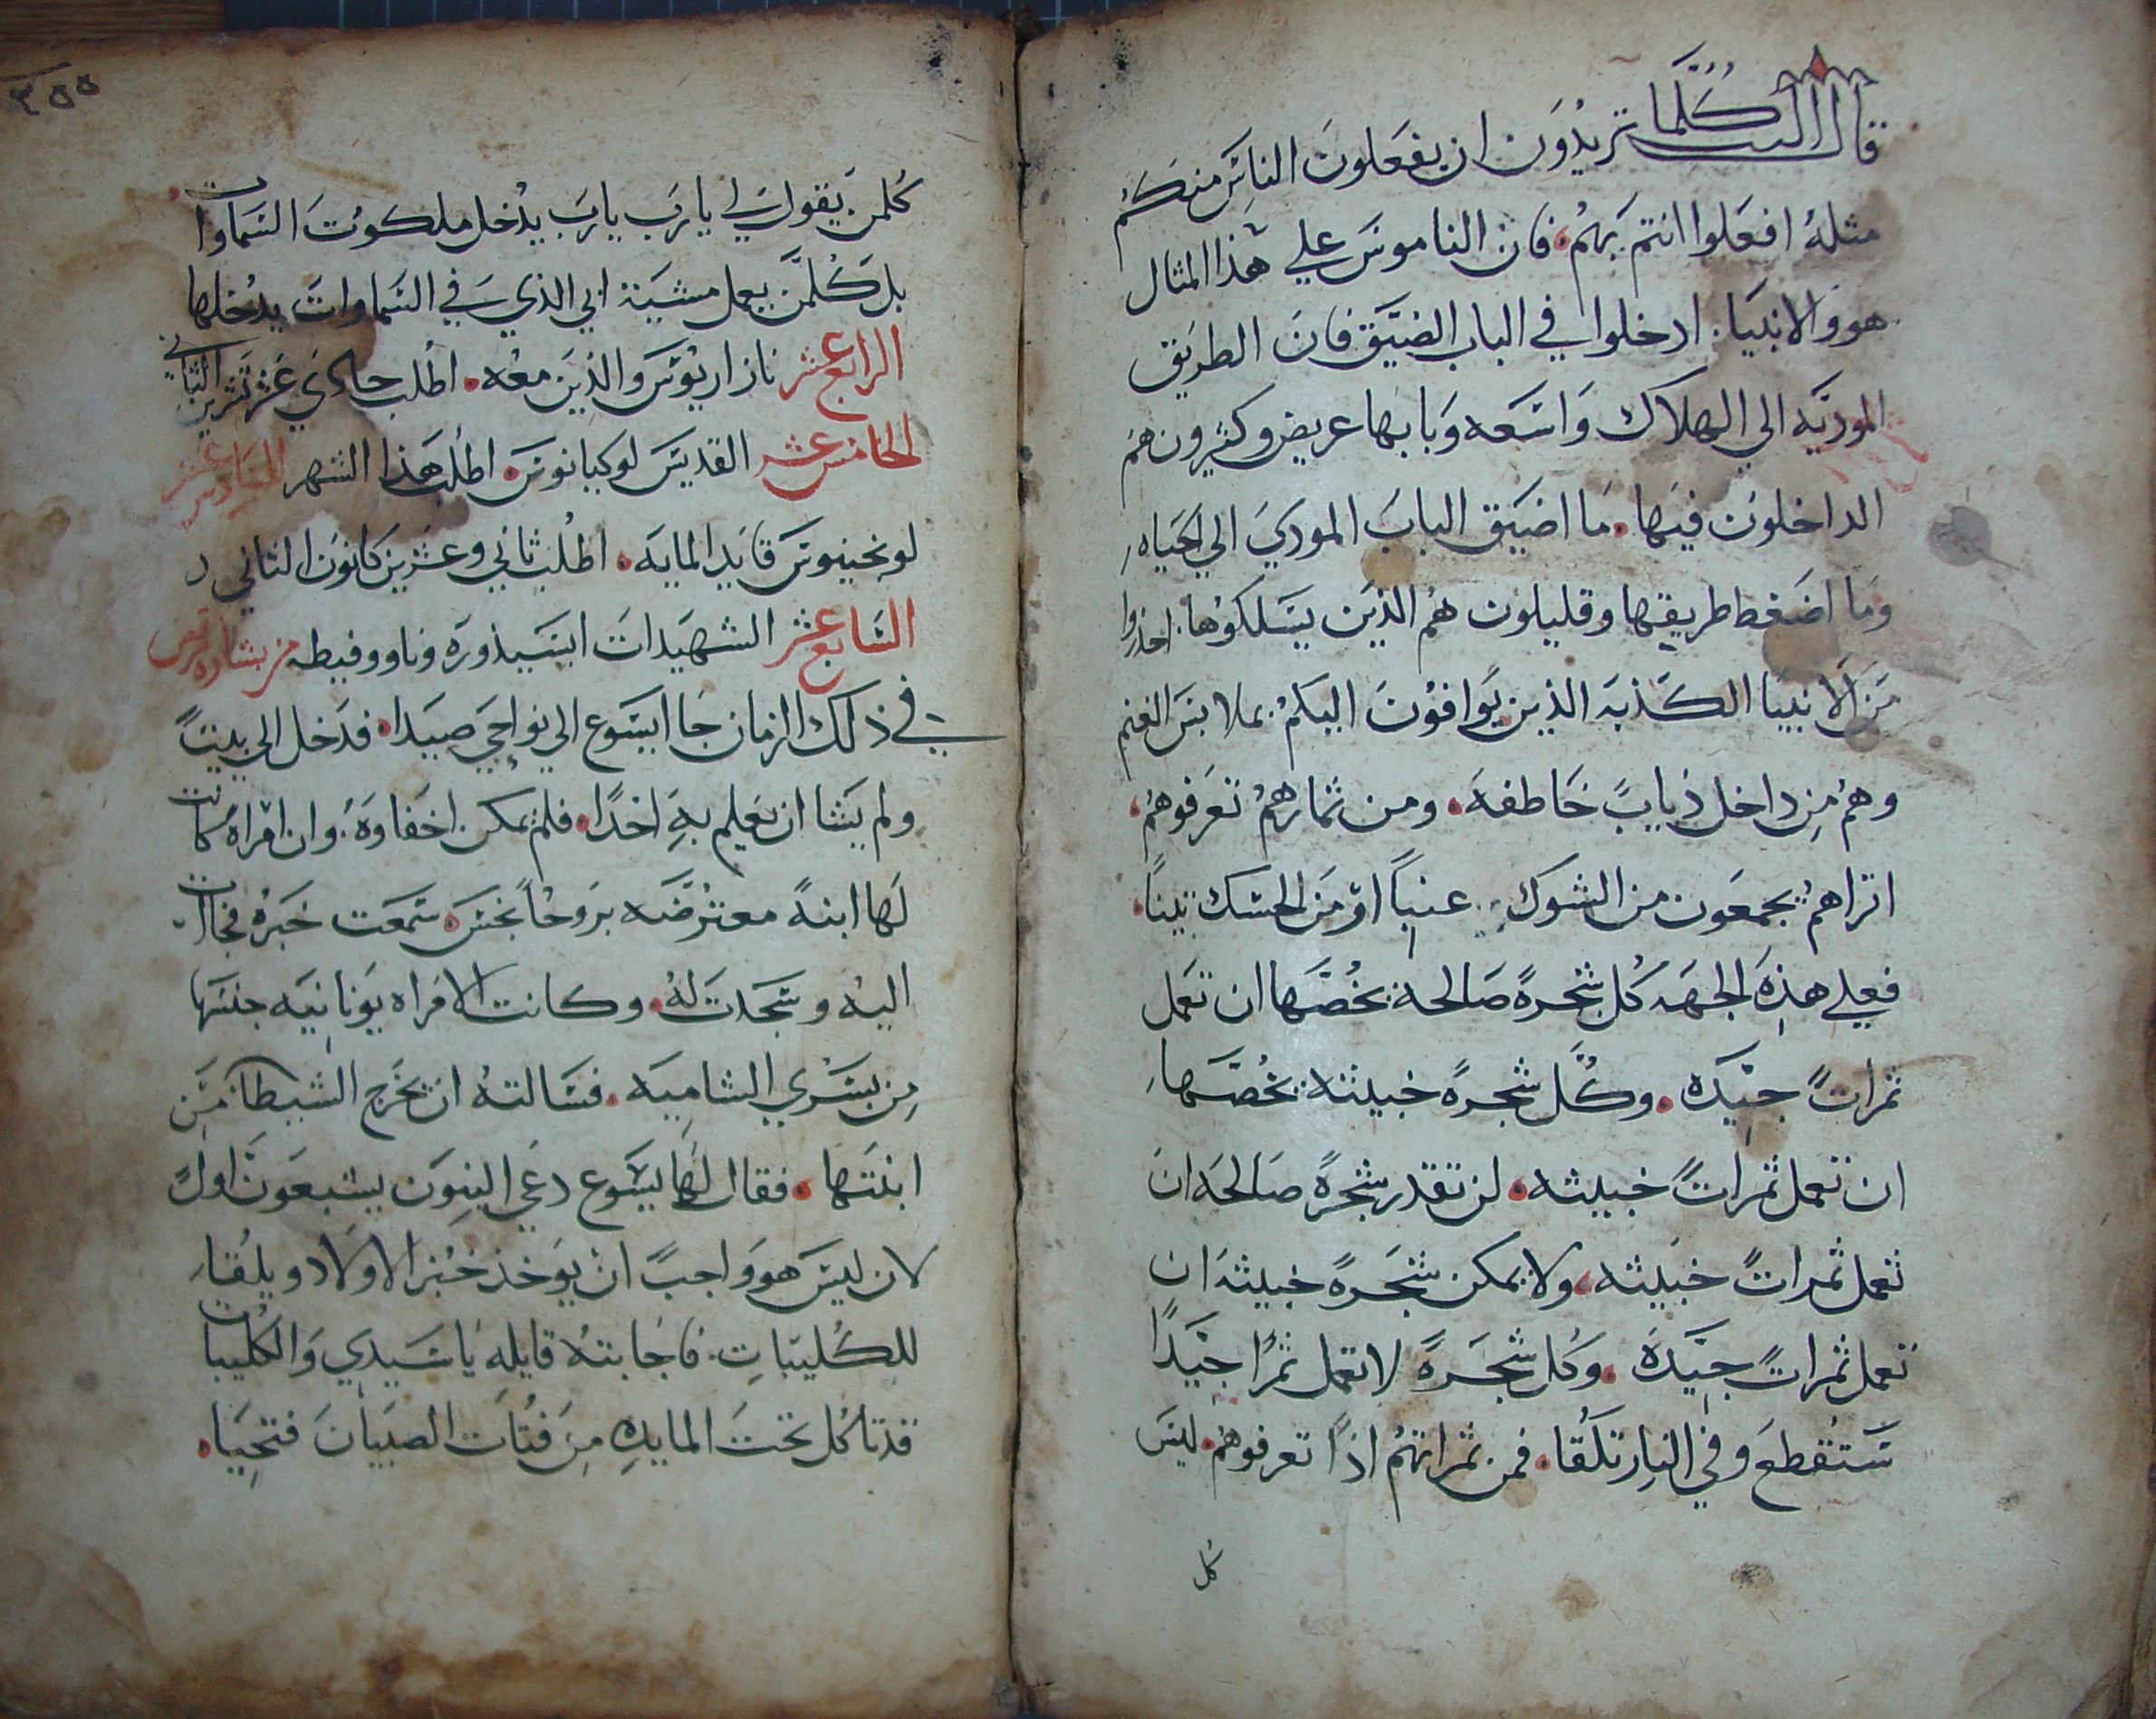 قال الرب كُلَّما تريدُون ان يفعَلونَ الناسَ منكمُ
مثلهُ افعَلوا انتم بَهمُ فان الناموسَ علي هَذا المثال
هو والانبيَا. ادخلوا في الباب الضيَّق فانَ الطريَق
المودَيَه الي الهلاك وَاسَعَه وَبابها عريض وكثيرون هُم
الداخلونَ فيَها. مَا اضيَق البابَ المودَيَ الي الحَيَاه
ومَا اضَغط طريقها وقليلون همُ الذيَن يسَلكوُها. احذروا
مَن الانبيَا الكَذبَه الذين يَوافوُنَ اليكمُ بملابسَ الغنم
وهمُ مِن داخل ذيابً خَاطفهَ. ومن ثمارهمُ تعَرفوهمُ.
اتراهمُ يجمعَون من الشوك عنباً اوَ مَن الحسَك تيناً.
فعلي هَذهِ الجهَه كُل شجرةً صَالحة يخُصَّها ان تعَمل
ثمراتً جيَّدَه. وكُل شجرةً خبيثة يخُصَّها
ان تعمل ثمراتً خبيثه. لن تقدر شجرةً صَالحَه ان
تعمل ثمراتً خبَيثه، ولا يمكن شجَرةً خبيثه ان
تعمل ثمراتً جيَّدَة. وكل شجَرةً لا تعمل ثمرًا جيَّدًا
سَتُقطعَ وفي النِار تلقَا. فمن ثمراتهُم اذًا تعرفوهُم. ليسَ
كل
٣٥٥
كُلمنَ يَقول لي يا ربَ يا ربَ يدُخل ملكوتَ السَماوات
بل كُلمَّن يعمل مشيَة ابي الذي في السَماوات يدُخلها
الرابع عشر نازاريوُسَ والذيَن معُه. اطُلب حادي عَشر تشَرين الثاني
الخامس عشر القديسَ لوكيانوسَ. اطُلب هَذا الشهر السَادس عشر
لونجينوسَ قايَد المايَه. اطُلب ثاني وعشَرين كانوَن الثاني
السَابع عشر الشهيَدات ايسَيذورَه وناووفيطه من بشارة مرقس
في ذلك الزمان جَا ايسَوع الي نواحَي صيَدا. فدَخل الي بيتً
ولم يَشا ان يَعلم بهِ احَدًا. فلم يمكن اخَفاوهَ. وان امَراةً كانت
لَها ابنةً معترضَّه بروحًا نجسَ. سَمعَت خبَرهُ فجات
اليهُ وسَجَدتَ لهُ. وكانت الامَراه يوَنانيَه جنسَها
مِن بسَري الشاميَه. فسَالتهُ ان يخَرج الشيطان مَن
ابنتَها. فقال لَها يسَوع دعَي البنوَن يشبعَونَ اولً
لان ليسَ هو وَاجبً ان يوَخذ خُبز الاولاد ويلُقا
للكُليبَات. فاجَابتهُ قايلهَ يَا سَيدي وَالكُليبات
قد تاكُل تحتَ المايدهِ مِن فتُاتَ الصبَيانَ فتحيَا.